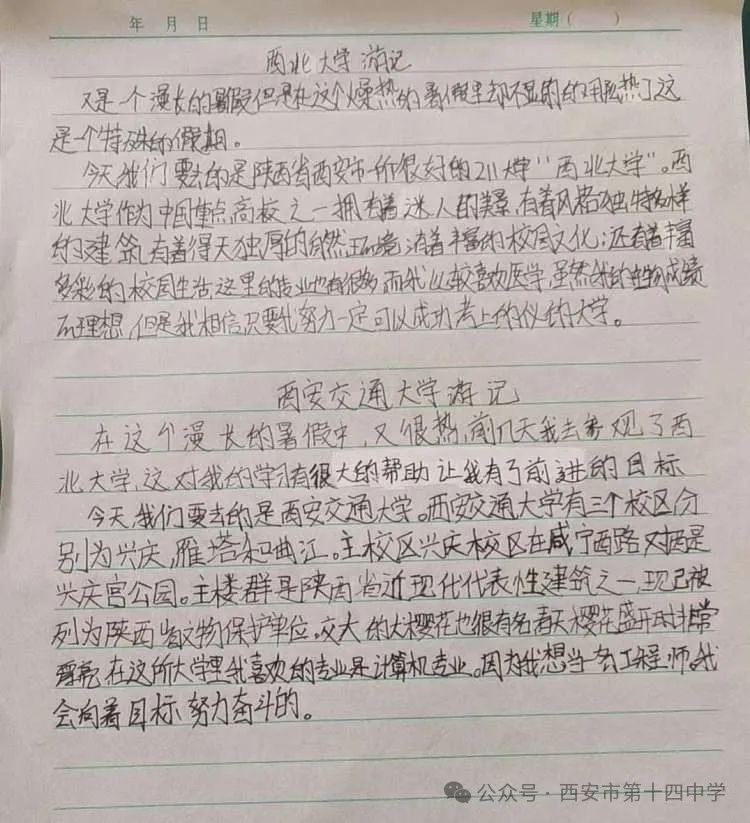 年 月 日 星期( )
西北大学游记
又是一个漫长的暑假但是在这个燥热的暑假里却不显的的那么热了这
是一个特殊的假期。
今天我们要去的是陕西省西安市一所很好的211大学"西北大学"。西
北大学作为中国重点高校之一拥有着迷人的美景,有着风格独特多样
的建筑,有着得天独厚的自然环境,有着丰富的校园文化;还有着丰富
多彩的校园生活,这里的专业也有很多,而我比较喜欢医学,虽然我的生物成绩
不理想,但是我相信只要我努力一定可以成功考上的仪的大学。
西安交通大学游记
在这个漫长的暑假中,又很热,前几天我去参观了西
北大学,这对我的学习有很大的帮助让我有了前进的目标
今天,我们要去的是西安交通大学。西安交通大学有三个校区分
别为兴庆,雁塔和曲江。主校区兴庆校区在咸宁西路,对面是
兴庆宫公园。主楼群是陕西省近现代代表性建筑之一,现已被
列为陕西省文物保护单位。交大的大樱花也很有名春天樱花盛开时非常
漂亮,在这所大学里我喜欢的专业是计算机专业。因为我想当一名工程师。我
会向着目标努力奋斗的。
公众号·西安市第十四中学